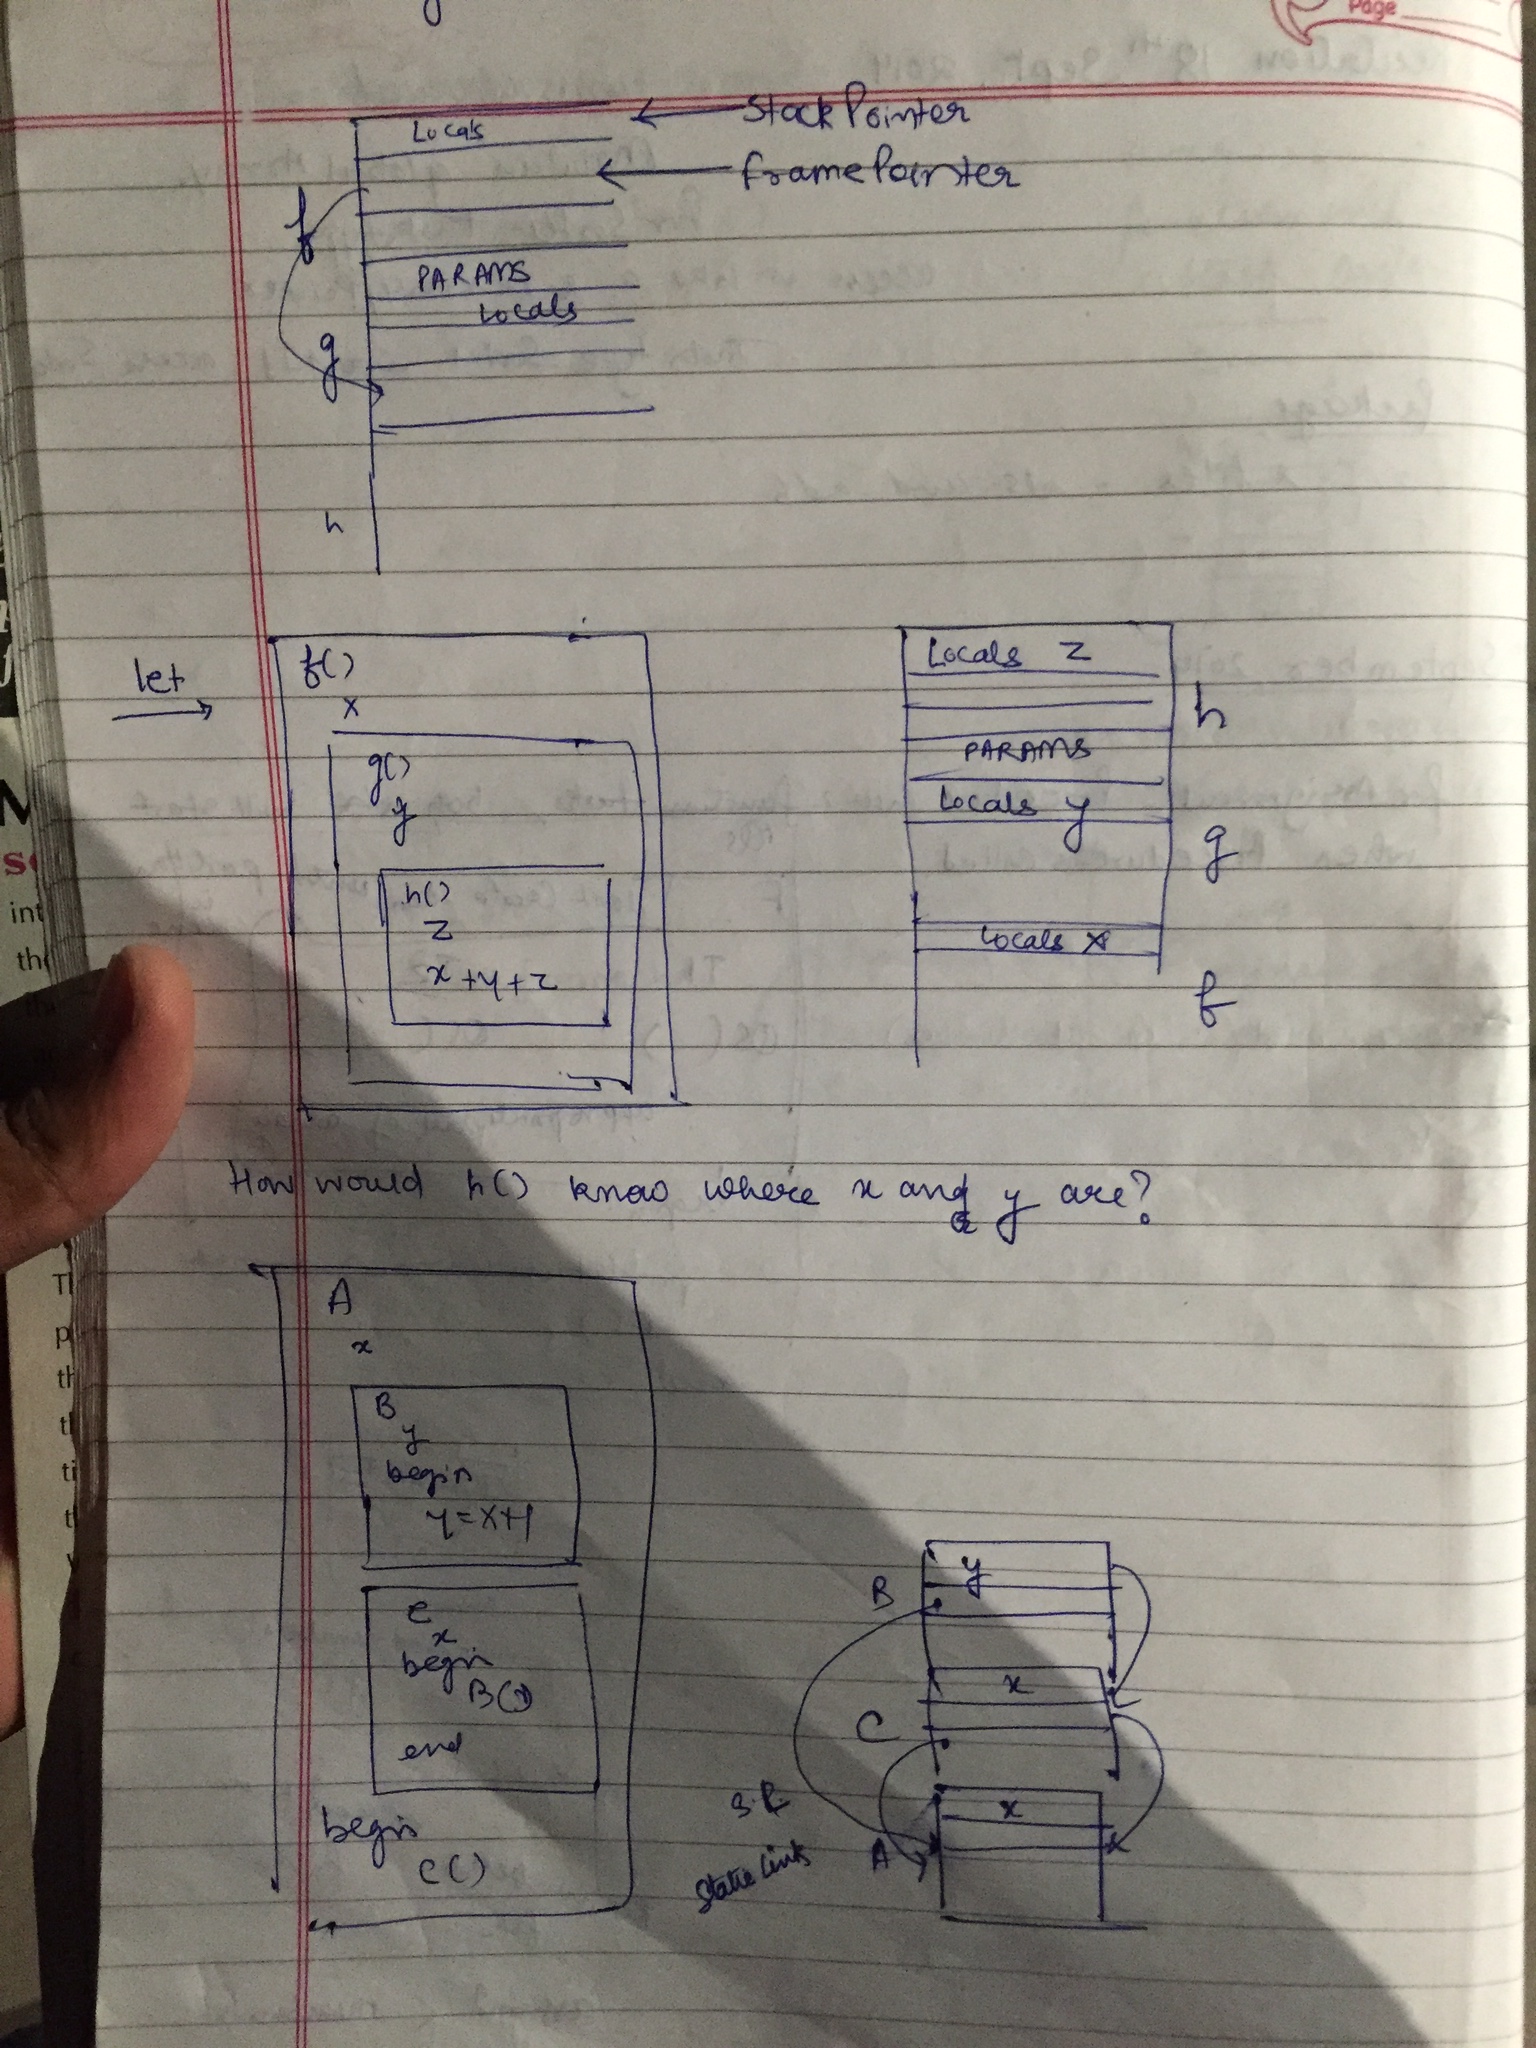 Page
Locals
Stack Pointer
frame Pointer
f
PARAMS
Locals
g
h
let
f()
x
g()
y
h()
z
x+y+z
Locals z
h
PARAMS
Locals y
g
Locals x
f
How would h() know where x and y are?
A
x
B
y
begin
y=x+1
C
x
begin
B()
end
begin
C()
y
B
x
C
x
A
static links